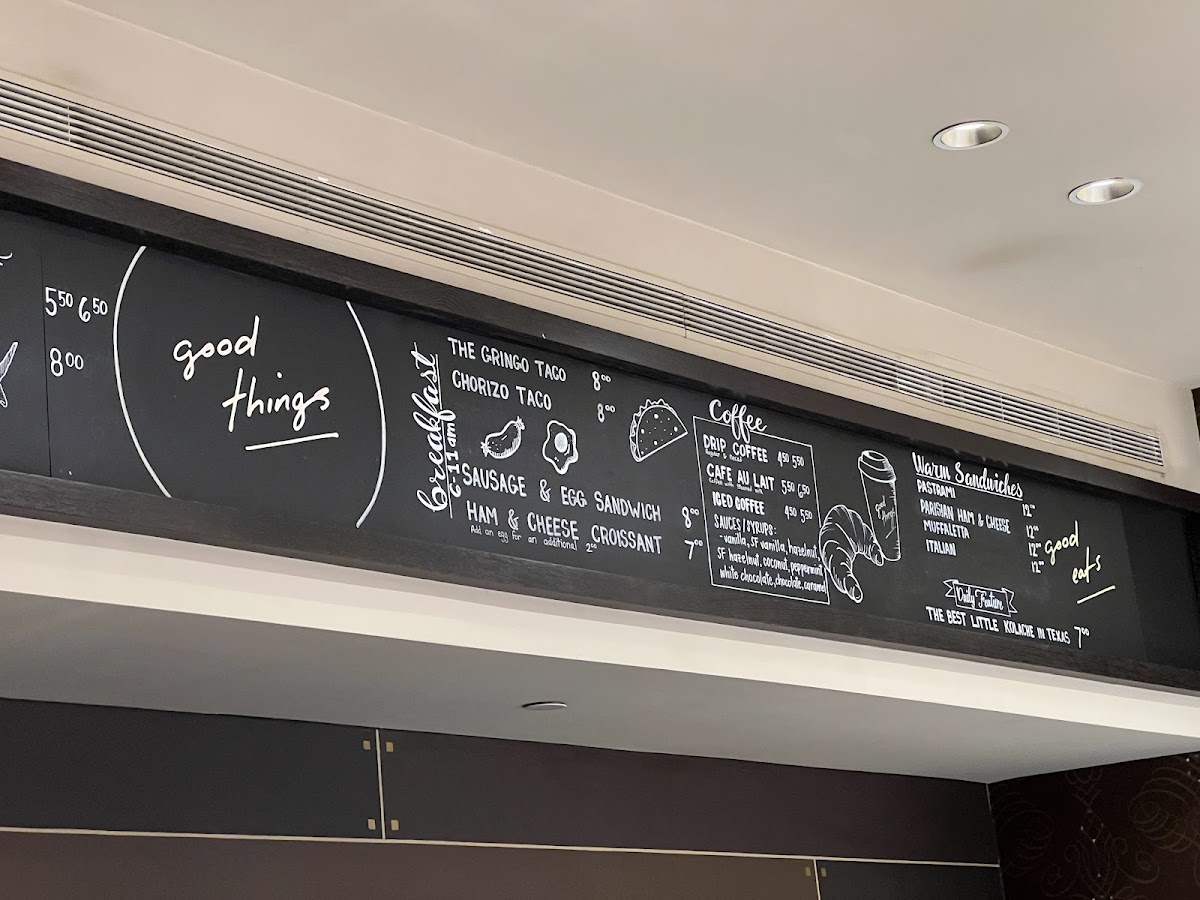 5⁵⁰ 6⁵⁰
8⁰⁰
good
things
breakfast
6-11am
THE GRINGO TACO 8⁰⁰
CHORIZO TACO 8⁰⁰
SAUSAGE & EGG SANDWICH 8⁰⁰
HAM & CHEESE CROISSANT 7⁰⁰
Add an egg for an additional 2⁰⁰
Coffee
DRIP COFFEE 4⁵⁰ 5⁵⁰
CAFE AU LAIT 5⁵⁰ 6⁵⁰
ICED COFFEE 4⁵⁰ 5⁵⁰
SAUCES/SYRUPS:
-vanilla, SF vanilla, hazelnut,
SF hazelnut, coconut, peppermint
white chocolate, chocolate, caramel
good
things
Warm Sandwiches
PASTRAMI 12⁰⁰
PARISIAN HAM & CHEESE 12⁰⁰
MUFFALETTA 12⁰⁰
ITALIAN 12⁰⁰
good
eats
Daily Feature
THE BEST LITTLE KOLACHE IN TEXAS 7⁰⁰